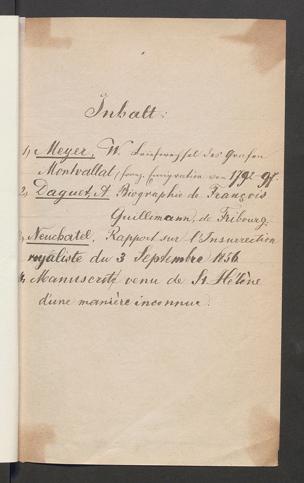 Inhalt:
1, Meyer, W. Briefwechsel des Grafen
Montvallat, (franz. Emigration von 1792 ff.
2, Daguet, A Biographie de François
Guillimann, de Fribourg.
3, Neuchatel, Rapport sur l'Insurrection
royaliste du 3 Septembre 1856
4, Manuscrit venu de St. Hélène
d'une manière inconnue.